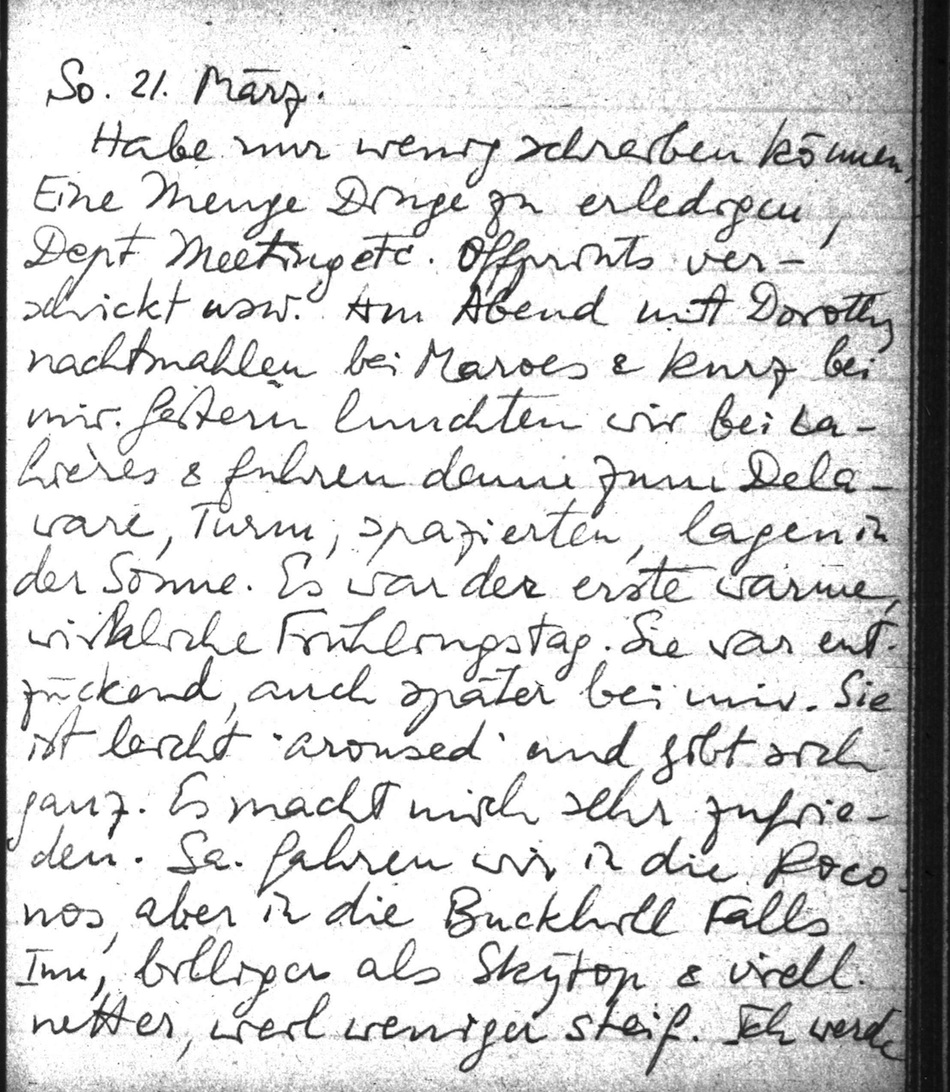 So. 21. März.
Habe nur wenig schreiben können,
Eine Menge Dinge zu erledigen,
Dept Meeting etc. Offprints ver-
schickt usw. Am Abend mit Dorothy
nachtmahlen bei & kurz bei
mir. Gestern lunchten wir bei La-
hières & fuhren dann zum Dela-
ware, Turm, spazierten, lagen in
der Sonne. Es war der erste warme,
wirkliche Frühlingstag. Sie war ent-
zückend, auch später bei mir. Sie
ist leicht 'aroused' und gibt sich
ganz. Es macht mich sehr zufrie-
den. Sa. fahren wir in die Poco-
nos, aber in die Buckhill Falls
Inn, billiger als Skytop & viell.
netter, weil weniger steif. Ich werde